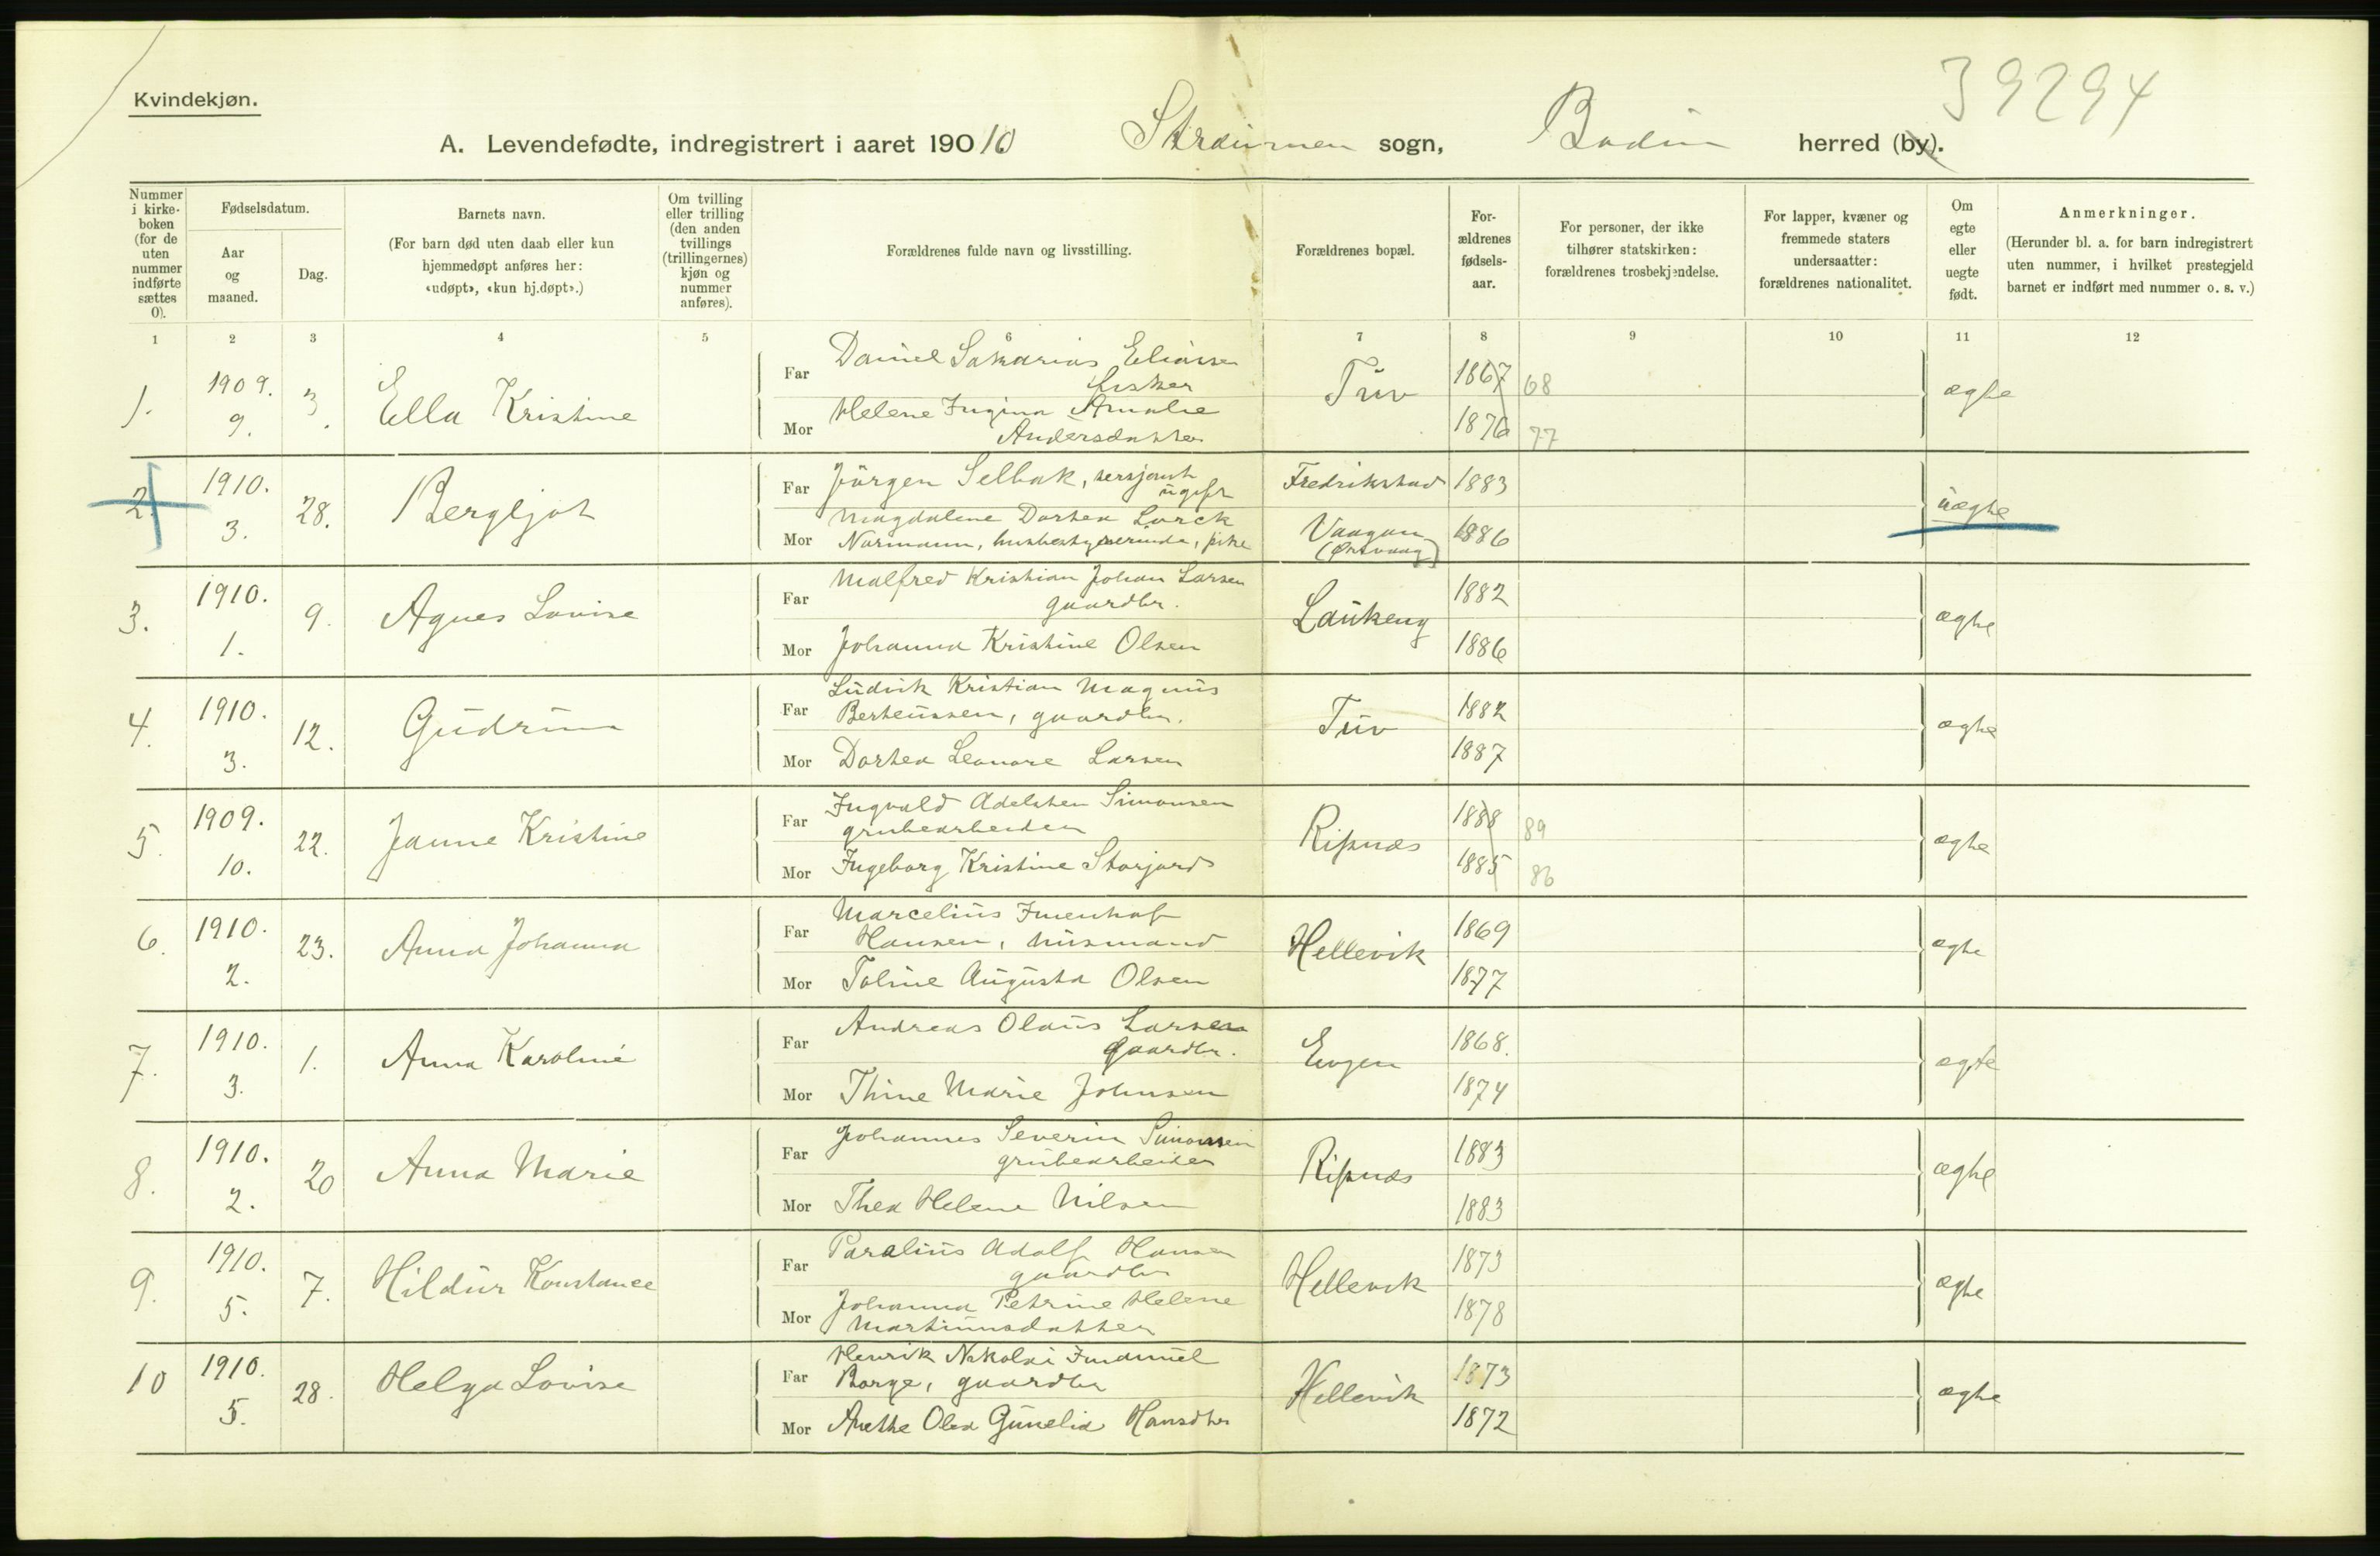 39294
Kvindekjøn.
A. Levendefødte, indregistrert i aaret 190 10 Strømmen sogn, Bodin herred (by).
Nummer i kirke-boken (for de uten nummer indførte sættes 0).
Fødselsdatum.
Aar og maaned.
Dag.
Barnets navn.
(For barn død uten daab eller kun hjemmedøpt anføres her: «udøpt», «kun hj.døpt».)
Om tvilling eller trilling (den anden tvillings (trillingernes) kjøn og nummer anføres).
Forældrenes fulde navn og livsstilling.
Forældrenes bopæl.
For-ældrenes fødsels-aar.
For personer, der ikke tilhører statskirken: forældrenes trosbekjendelse.
For lapper, kvæner og fremmede staters undersaatter: forældrenes nationalitet.
Om egte eller uegte født.
Anmerkninger.
(Herunder bl. a. for barn indregistrert uten nummer, i hvilket prestegjeld barnet er indført med nummer o. s. v.)
1 2 3 4 5 6 7 8 9 10 11 12
1. 1909. 9. 3. Ella Kristine
Far Daniel Sakarias Eliassen
fisker
Mor Helene Ingina Amalie
Andersdatter
Tuv 1867 68 1876 77 ægte
2. 1910. 3. 28. Bergljot
Far Jörgen Selbak, sersjant
ugift
Mor Magdalene Dortea Lorck
Normann, husbestyrerinde, pike
Fredrikstad 1883
Vaagan (Østvaag) 1886 uægte
3. 1910. 1. 9. Agnes Lovise
Far Malfred Kristian Johan Larsen
gaardbr.
Mor Johanna Kristine Olsen
Laukeng 1882 1886 ægte
4. 1910. 3. 12. Gudrun
Far Ludvik Kristian Magnus
Berteussen, gaardbr.
Mor Dortea Leonore Larsen
Tuv 1882 1887 ægte
5. 1909. 10. 22. Janne Kristine
Far Ingvald Adelsten Simonsen
grubearbeider
Mor Ingeborg Kristine Storjord
Ripnæs 1888 89 1885 86 ægte
6. 1910. 2. 23. Anna Johanna
Far Marcelius Imenhof
Hansen, husmand
Mor Toline Augusta Olsen
Hellevik 1869 1877 ægte
7. 1910. 3. 1. Anna Karoline
Far Andreas Olaus Larsen
gaardbr.
Mor Thine Marie Johnsen
Evjen 1868. 1874 ægte
8. 1910. 2. 20 Anna Marie
Far Johannes Severin Simonsen
grubearbeider
Mor Thea Helene Nilsen
Ripnæs 1883 1883 ægte
9. 1910. 5. 7. Hildur Konstance
Far Paralius Adolf Hansen
gaardbr
Mor Johanna Petrine Helene
Martinusdatter
Hellevik 1873 1878 ægte
10 1910. 5. 28. Helga Lovise
Far Henrik Nikolai Imanuel
Borge, gaardbr
Mor Anethe Olea Gunelia Hansdtr
Hellevik 1873 1872 ægte